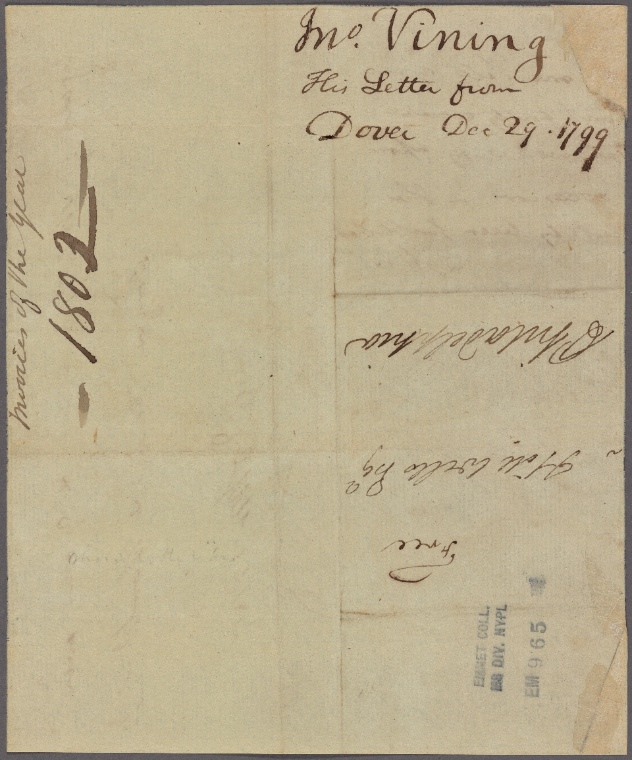 Jno. Vining
His Letter from
Dover Dec 29. 1799
of the year
1802
Philadelphia
Wells Esqr
Free
EMMET COLL.
MS DIV. NYPL
EM 965